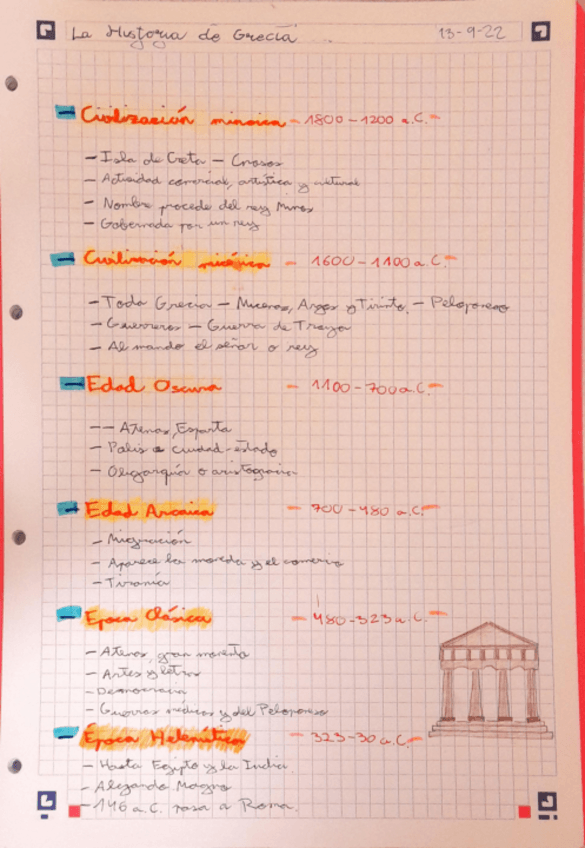 La Historia de Grecia 13-9-22
Civilización minoica - 1800-1200 a.C. -
- Isla de Creta - Cnosos
- Actividad comercial, artística y cultural
- Nombre procede del rey Minos
- Gobernada por un rey
Civilización micénica - 1600-1100 a.C. -
- Toda Grecia - Micenas, Argos y Tirinto. - Peloponeso
- Guerreros - Guerra de Troya
- Al mando el señor o rey
Edad Oscura - 1100-700 a.C. -
-- Atenas, Esparta
- Polis o ciudad-estado
- Oligarquía o aristogracia
Edad Arcaica - 700-480 a.C. -
- Migración
- Aparece la moneda y el comercio
- Tiranía
Época Clásica - 480-323 a.C. -
- Atenas, gran
- Artes y letras
- Democracia
- Guerras médicas y del Peloponeso
Época Helenística - 323-30 a.C. -
- Hasta Egipto y la India.
- Alejandro Magno
- 146 a.C. pasa a Roma.